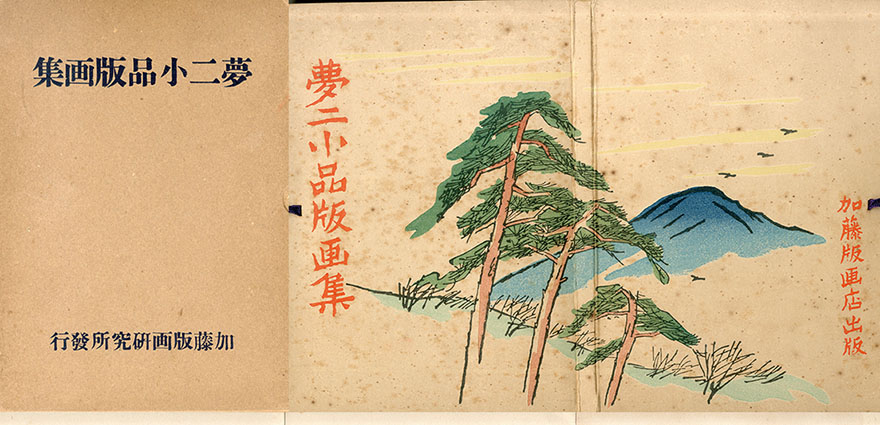 夢二小品版画集
加藤版画硏究所發行
夢二小品版画集
加藤版画店出版